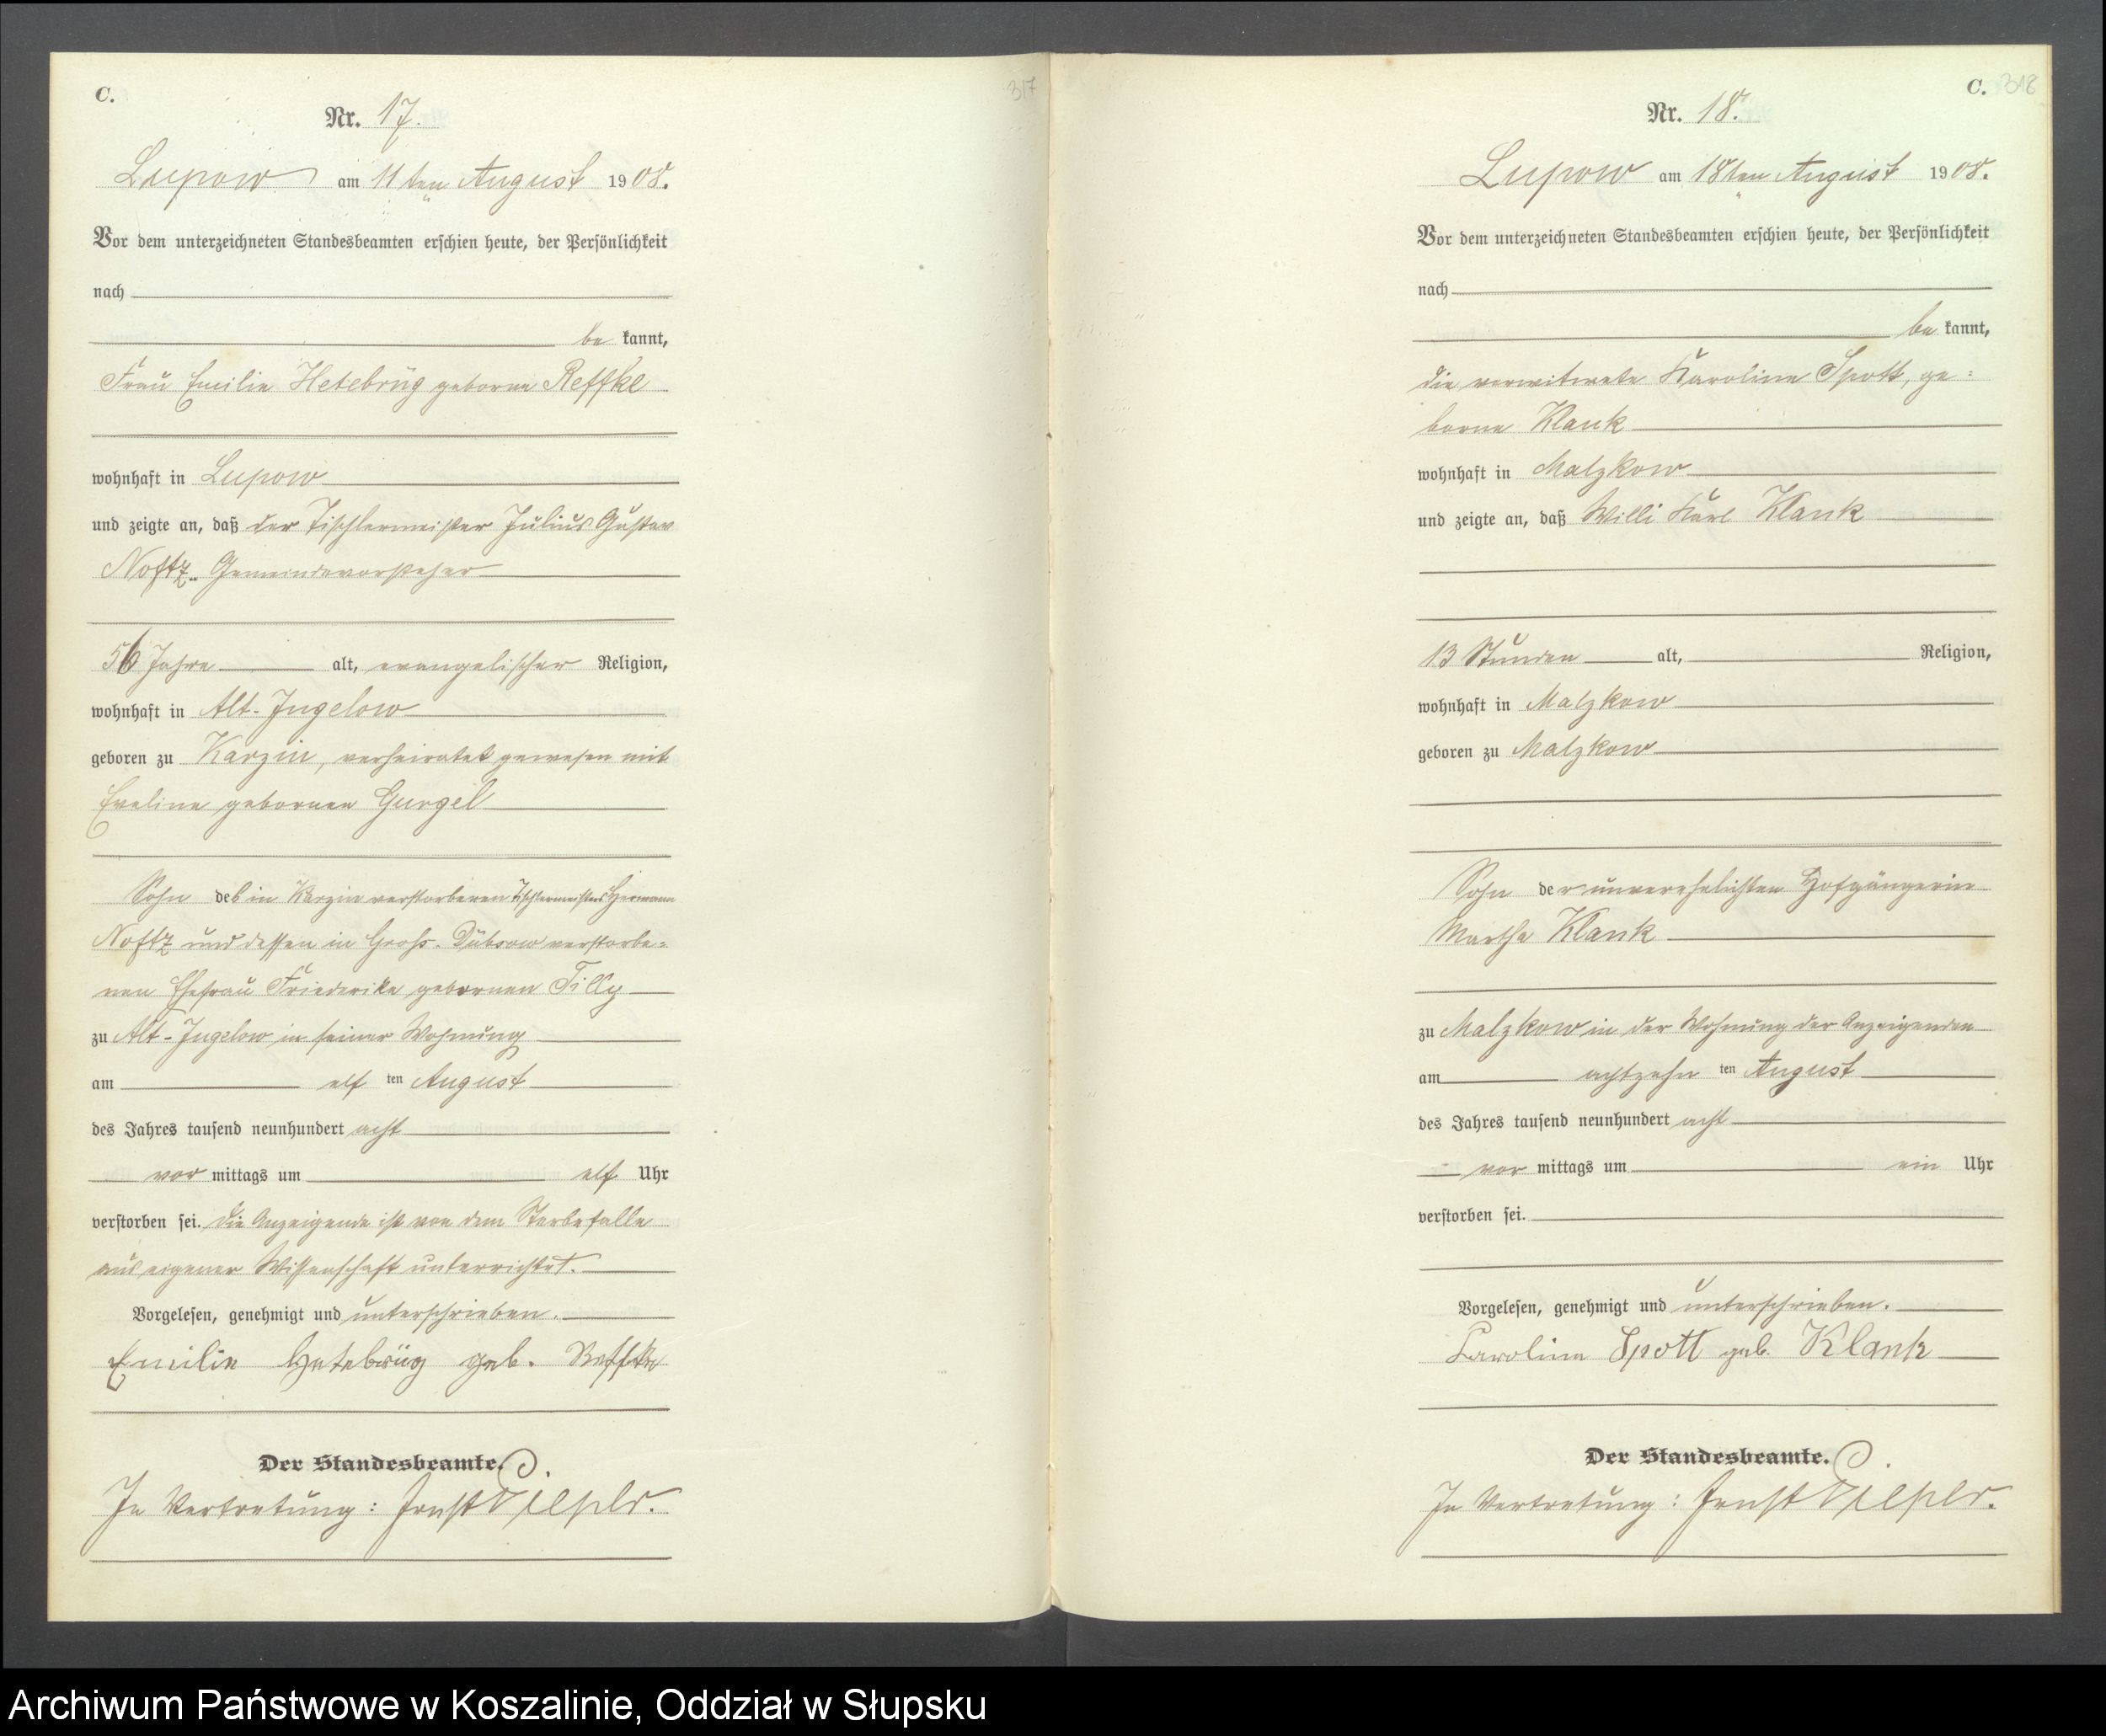 C.
317
Nr. 17.
Lupow am 11ten August 1908.
Vor dem unterzeichneten Standesbeamten erschien heute, der Persönlichkeit
nach
be kannt,
Frau Emilie Hetebrüg geborne Reffke
wohnhaft in Lupow
und zeigte an, daß der Tischlermeister Julius Gustav
Noffz, Gemeindevorsteher
56 Jahre alt, evangelischer Religion,
wohnhaft in Alt-Jugelow
geboren zu Karzin, verheiratet gewesen mit
Eveline gebornen Gurgel
Sohn des in Karzin verstorbenen Tischlermeisters Hermann
Noffz und dessen in Groß-Dübsow verstorbe-
nen Ehefrau Friederike gebornen Tilly
zu Alt-Jugelow in seiner Wohnung
am elf ten August
des Jahres tausend neunhundert acht
vor mittags um elf Uhr
verstorben sei. Die Anzeigende ist von dem Sterbefalle
aus eigener Wissenschaft unterrichtet.
Vorgelesen, genehmigt und unterschrieben.
Emilie Hetebrüg geb. Reffke
Der Standesbeamte.
In Vertretung: Ernst
C. 318
Nr. 18.
Lupow am 18ten August 1908.
Vor dem unterzeichneten Standesbeamten erschien heute, der Persönlichkeit
nach
be kannt,
die verwitwete Karoline Spott, ge-
borne Klank
wohnhaft in Malzkow
und zeigte an, daß Willi Karl Klank
13 Stunden alt, Religion,
wohnhaft in Malzkow
geboren zu Malzkow
Sohn der unverehelichten Hofgängerin
Martha Klank
zu Malzkow in der Wohnung der Anzeigenden
am achtzehn ten August
des Jahres tausend neunhundert acht
vor mittags um ein Uhr
verstorben sei.
Vorgelesen, genehmigt und unterschrieben.
Karoline Spott geb. Klank
Der Standesbeamte.
In Vertretung: Ernst
Archiwum Państwowe w Koszalinie, Oddział w Słupsku